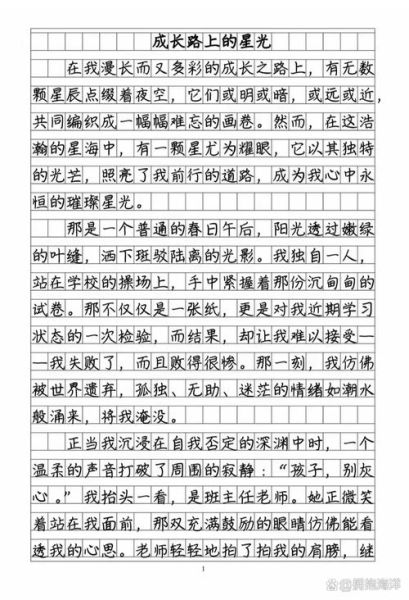 成长路上的星光
在我漫长而又多彩的成长之路上，有无数
颗星辰点缀着夜空，它们或明或暗，或远或近，
共同编织成一幅幅难忘的画卷。然而，在这浩
瀚的星海中，有一颗星尤为耀眼，它以其独特
的光芒，照亮了我前行的道路，成为我心中永
恒的璀璨星光。
那是一个普通的春日午后，阳光透过嫩绿
的叶缝，洒下斑驳陆离的光影。我独自一人，
站在学校的操场上，手中紧握着那份沉甸甸的
试卷。那不仅仅是一张纸，更是对我近期学习
状态的一次检验，而结果，却让我难以接受—
—我失败了，而且败得很惨。那一刻，我仿佛
被世界遗弃，孤独、无助、迷茫的情绪如潮水
般涌来，将我淹没。
正当我沉浸在自我否定的深渊中时，一个
温柔的声音打破了周围的寂静：“孩子，别灰
心。”我抬头一看，是班主任老师。她正微笑
着站在我面前，那双充满鼓励的眼睛仿佛能看
透我的心思。老师轻轻地拍了拍我的肩膀，继
1
@拥抱海洋